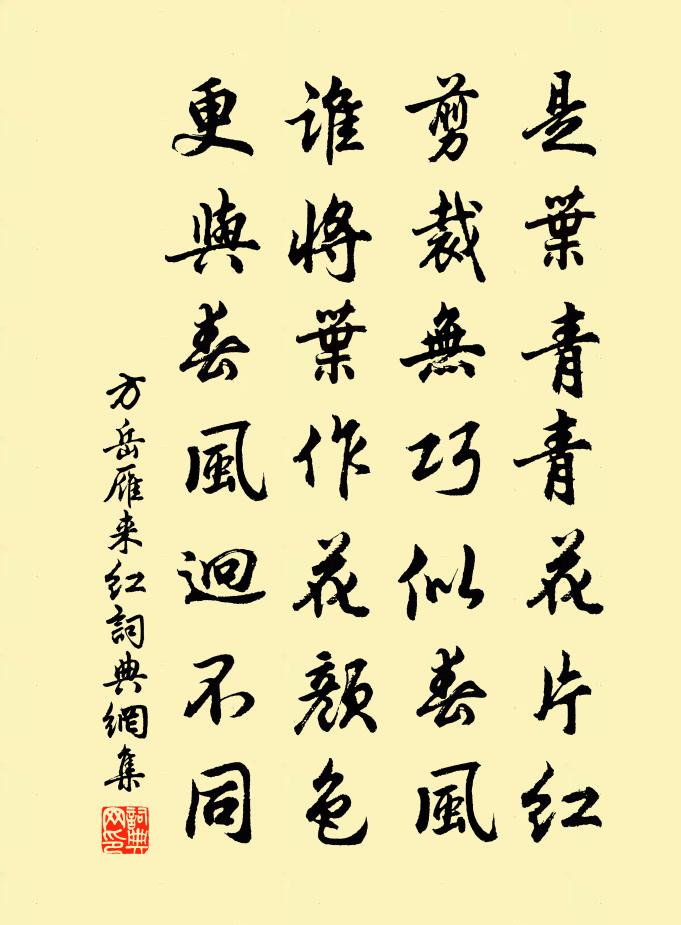 是葉青青花片紅
剪裁無巧似春風
誰將葉作花顏色
更與春風迥不同
方岳雁来红詞典網集
詞典網印